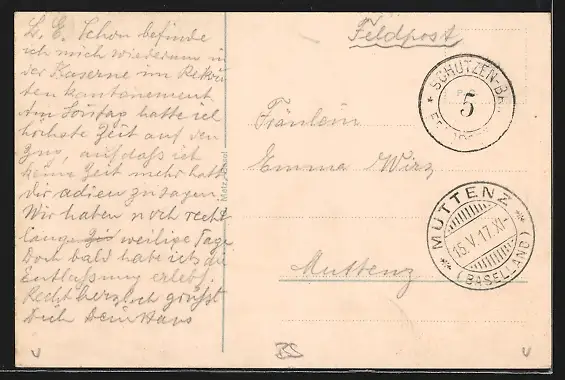 L. E. Schon befinde
ich mich wiederum in
der Kaserne im Rekru
ten kantonnement
Am Sontag hatte ich
höchste Zeit auf den
Zug, aufdass ich
keine Zeit mehr hatte
dir adien zu sagen.
Wir haben noch recht
lang weilige Tage
Doch bald habe ich die
Entlassung erlebt.
Recht herzlich grüsst
Dich Dein Hans
Feldpost
SCHÜTZEN-BA
5
Fräulein
Emma Wirz
Muttenz
MUTTENZ
15.V.17.XI-
(BASELLAND)
Metz, Basel
BS
v
v